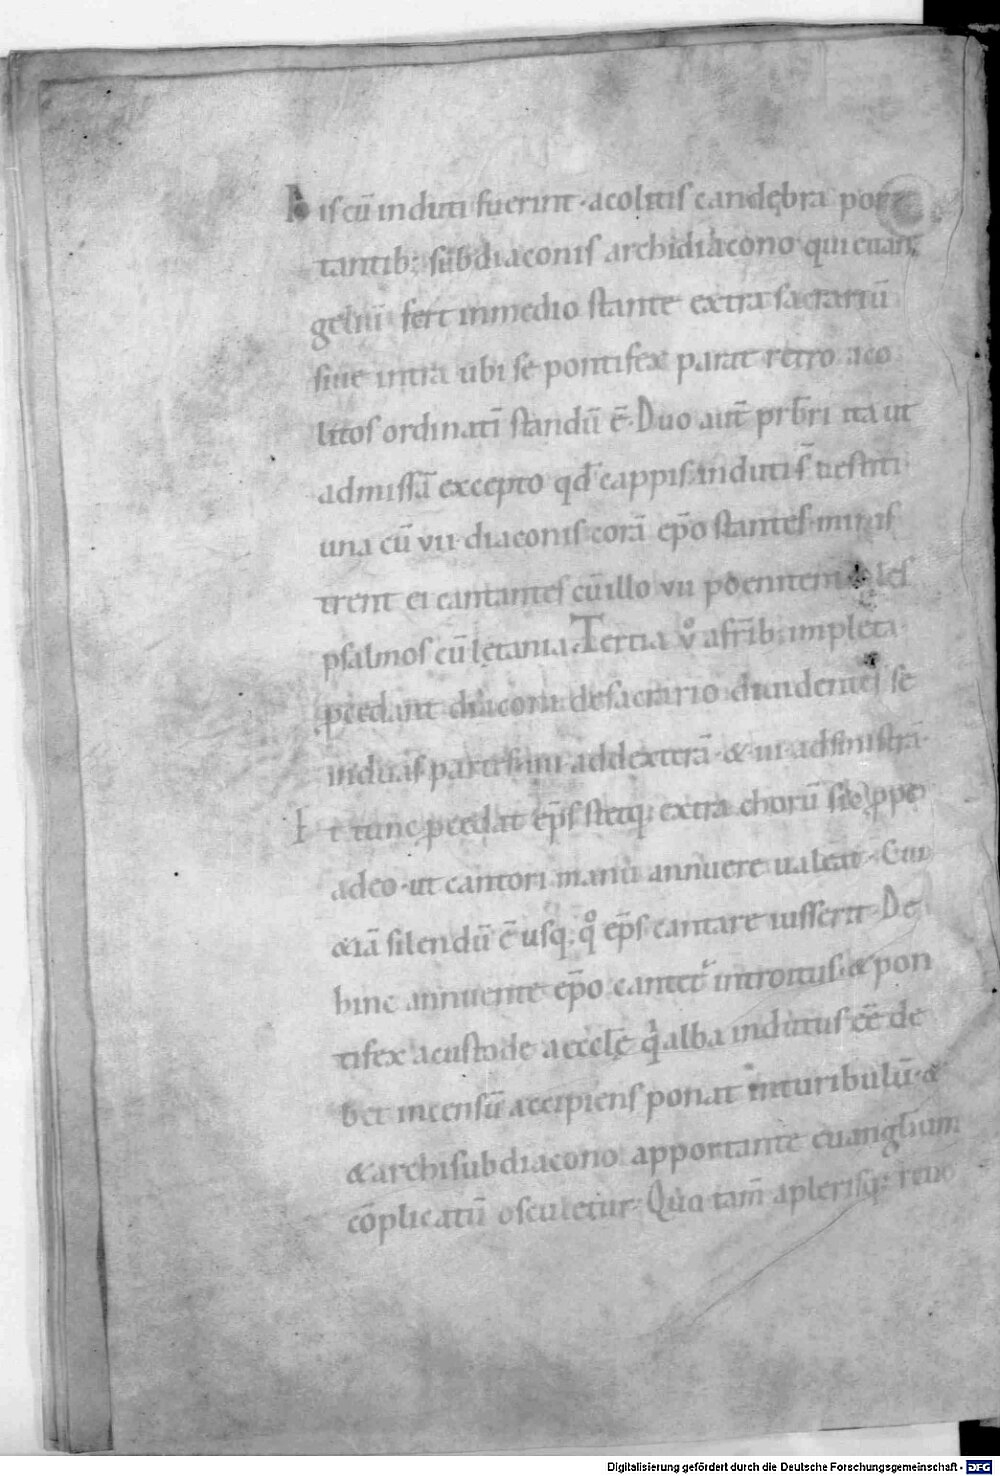 His cū induti fuerint · acolitis candębra por
tantib; subdiaconis archidiacono qui euan
geliū fert inmedio stante extra sacrariū
siue intra ubi se pontifex parat retro aco
litos ordinatī standū ē · Duo aut̄ prb̄ri ita ut
admissā excepto qđ cappis induti s̄ uestiti
una cū vii diaconis corā ep̄o stantes minis
trent ei cantantes cū illo vii poenitentiales
psalmos cū lętania · Tertia v° afr̄ib; impleta
pcedant diaconi desacrario diuidentes se
induas partes iiii addexterā · & iii adsinistrā ·
Et tunc pcedat ep̄s stetq; extra chorū sic ppe
adeo · ut cantori manu annuere ualeat · Cui
&iā silendū ē usq; q° ep̄s cantare iusserit · De
hinc annuente ep̄o cantet introitus · & pon
tifex acustode aeccl̄ę q alba indutus ēē de
bet incensū accipiens ponat inturibulū · &
& archisubdiacono apportante euangl̄ium
cōplicatū osculetur · Quo tam̄ aplerisq; reuo
Digitalisierung gefördert durch die Deutsche Forschungsgemeinschaft - DFG